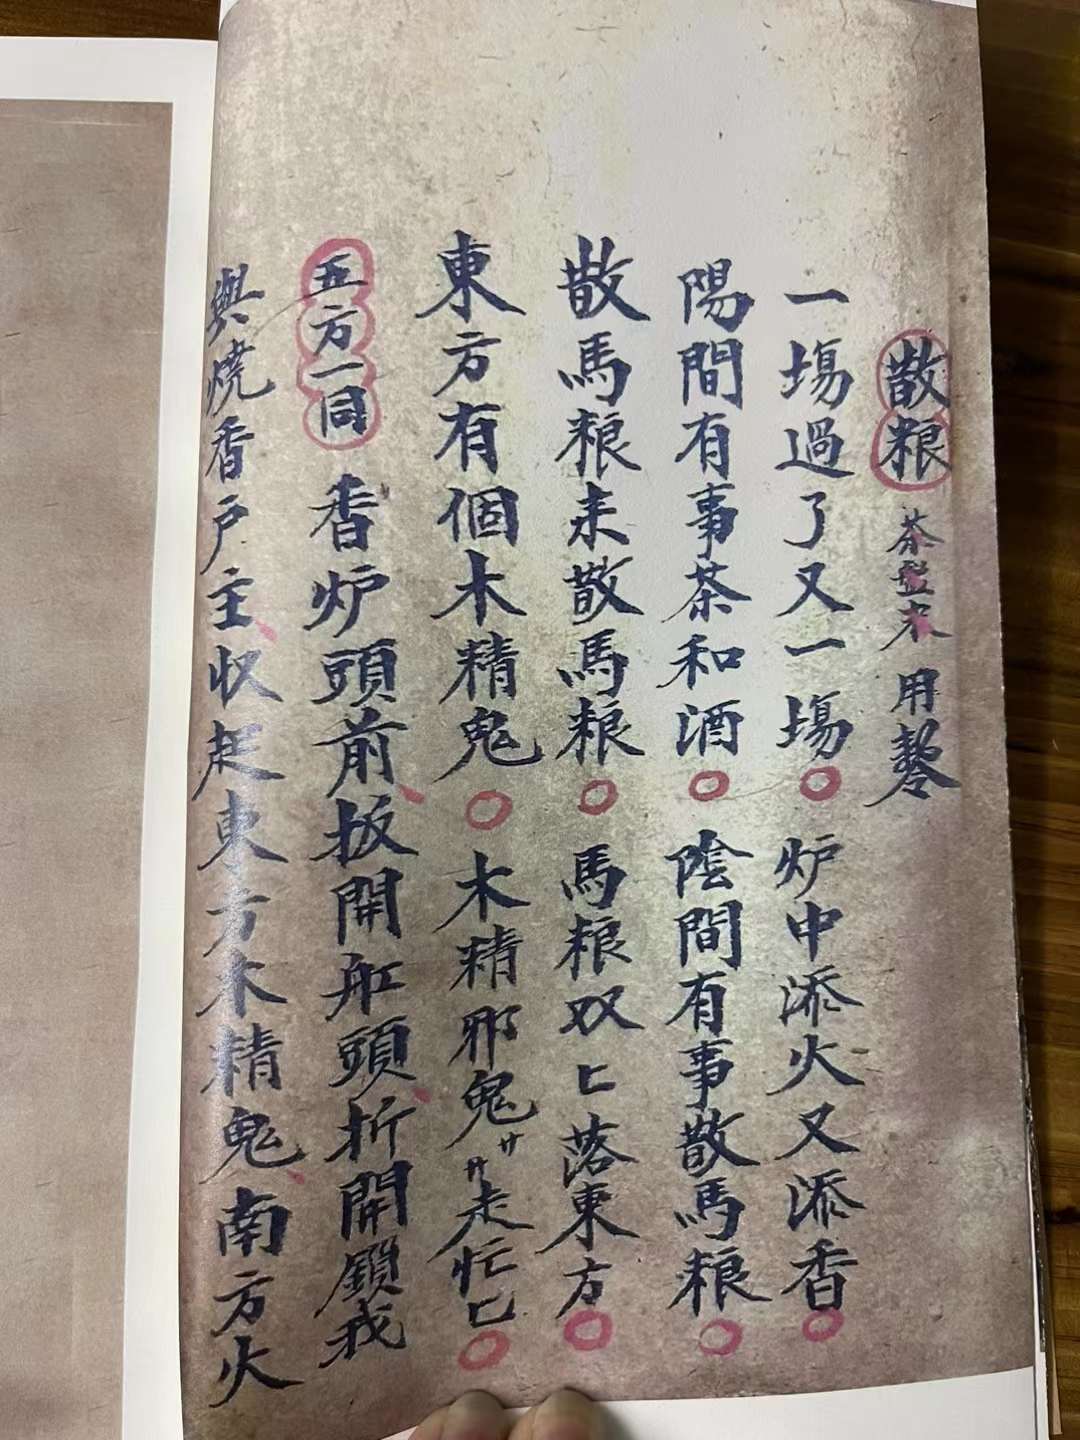 散粮 茶盐米 用
一塲過了又一塲○炉中添火又添香○
陽間有事茶和酒○陰間有事散馬粮○
散馬粮来散馬粮○馬粮双〻落東方○
東方有個木精鬼○木精邪鬼〃〃走忙匕○
五方一同 香炉頭前、扳開舡頭、折開鎖戎
與燒香户主、收起東方木精鬼、南方火